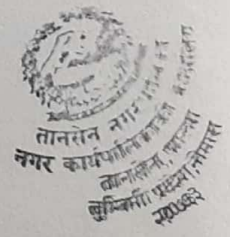 तानसेन नगरपालिका
नगर कार्यपालिकाको कार्यालय
तानसेन, पाल्पा
लुम्बिनी प्रदेश, नेपाल